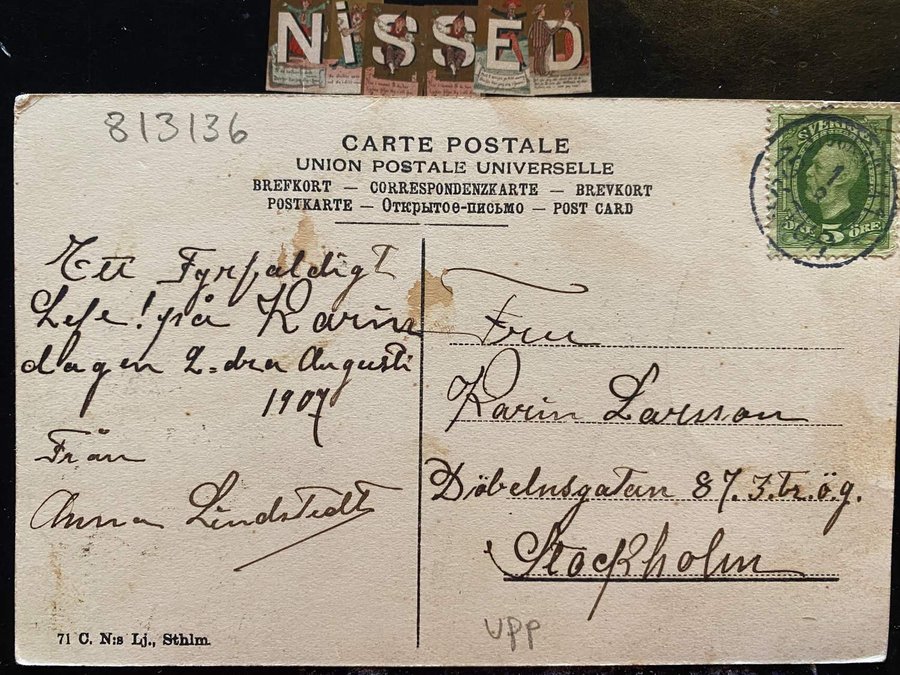 NISSED
813136
CARTE POSTALE
UNION POSTALE UNIVERSELLE
BREFKORT — CORRESPONDENZKARTE — BREVKORT
POSTKARTE — Открытое-письмо — POST CARD
SVERIGE
5 ÖRE
Ett Fyrfaldigt
Lefe! på Karin
dagen 2=dra Augusti
1907
Från
Anna Lindstedt
Fru
Karin Larsson
Döbelnsgatan 87.3.tr.ö.g.
Stockholm
71 C. N:s Lj., Sthlm.
upp